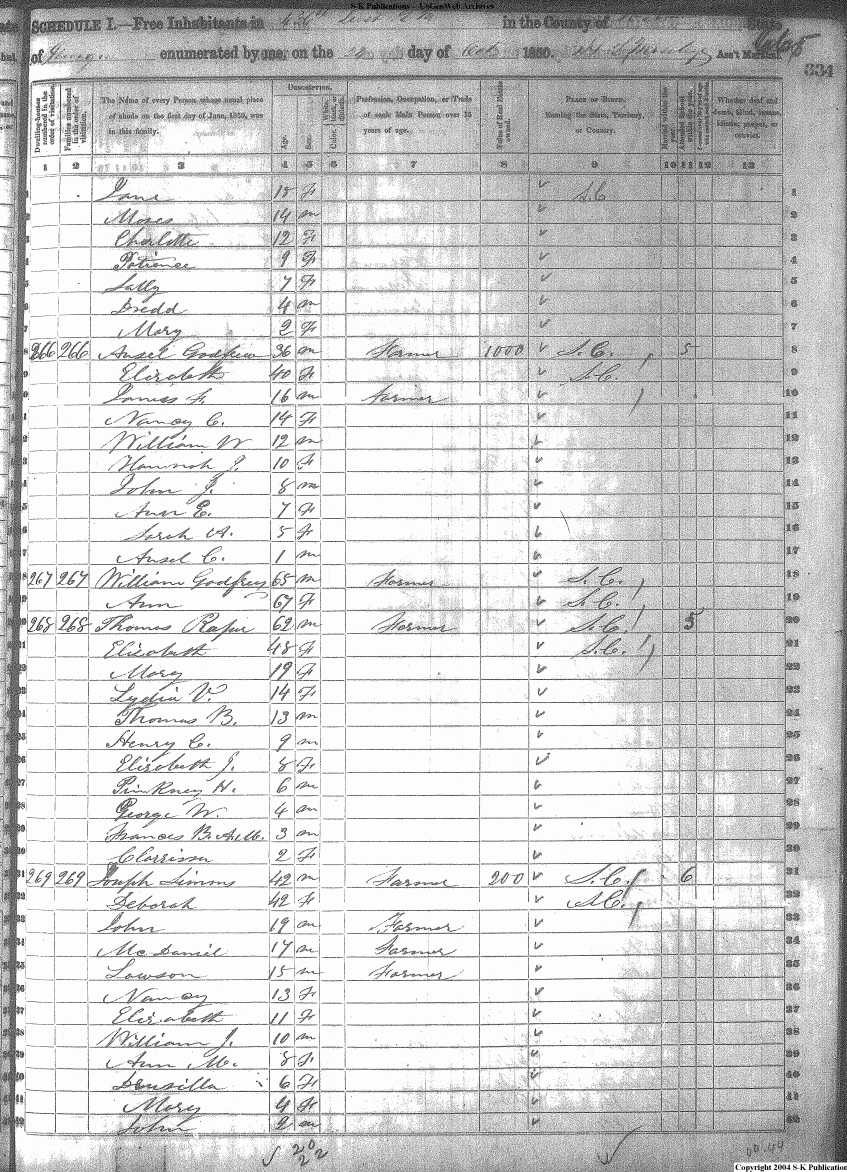 S-K Publications - UsGenWeb Archives
SCHEDULE I.—Free Inhabitants in in the County of State
of enumerated by me, on the day of 1850. Ass't Marshal.
665
334
Dwelling-houses numbered in the order of visitation.
Families numbered in the order of visitation.
The Name of every Person whose usual place of abode on the first day of June, 1850, was in this family.
DESCRIPTION.
Age.
Sex.
Color, White, black, or mulatto.
Profession, Occupation, or Trade of each Male Person over 15 years of age.
Value of Real Estate owned.
PLACE OF BIRTH. Naming the State, Territory, or Country.
Married within the year.
Attended School within the year.
Whether deaf and dumb, blind, insane, idiotic, pauper, or convict.
1 2 3 4 5 6 7 8 9 10 11 12 13
Jane 18 F S.C 1
Moses 14 m 2
Charlotte 12 F 3
Patience 9 F 4
Sally 7 F 5
Dredd 4 m 6
Mary 2 F 7
266 266 Ansel Godfrew 36 m Farmer 1000 S.C. 5 8
Elizabeth 40 F S.C. 9
James F. 16 m Farmer 10
Nancy C. 14 F 11
William W 12 m 12
Hannah J. 10 F 13
John J. 8 m 14
Ann E. 7 F 15
Sarah A. 5 F 16
Ansel C. 1 m 17
267 267 William Godfrey 65 m Farmer S.C. 18
Ann 67 F S.C. 19
268 268 Thomas 62 m Farmer S.C. 5 20
Elizabeth 48 F S.C. 21
Mary 19 F 22
Lydia V. 14 F 23
Thomas B. 13 m 24
Henry C. 9 m 25
Elizabeth J. 8 F 26
Pinkney H. 6 m 27
George W. 4 m 28
Frances B. A. M. 3 m 29
Clarrissa 2 F 30
269 269 Joseph Simms 42 m Farmer 200 S.C. 6 31
Deborah 42 F S.C. 32
John 19 m Farmer 33
McDaniel 17 m Farmer 34
Lawson 15 m Farmer 35
Nancy 13 F 36
Elizabeth 11 F 37
William J. 10 m 38
Ann M. 8 F 39
Drusilla 6 F 40
Mary 4 F 41
John 2 m 42
20
22
Copyright 2004 S-K Publication